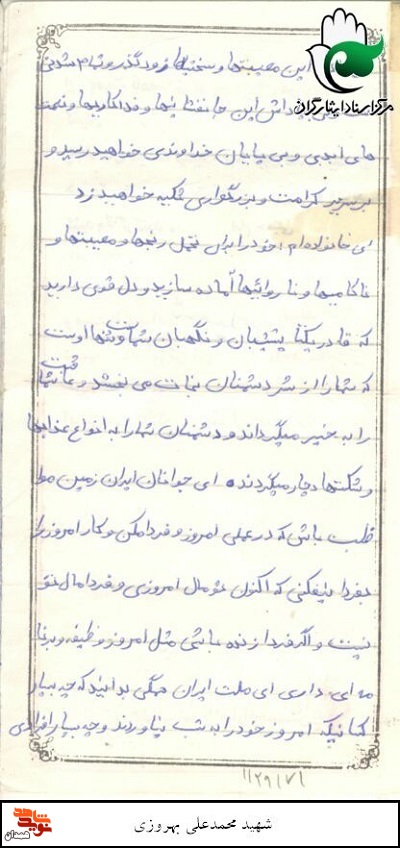 مرکز اسناد ایثارگران
این مصیبتها و سختیها زود گذر و تمام شدنی
پاداش این جانفشانیها و فداکاریها و نعمت
های ابدی و بی پایان خداوندی خواهید رسید و
بر سریر کرامت و بزرگواری تکیه خواهید زد
ای خانواده ام، خود را برای تحمل رنجها و مصیبتها و
ناکامیها و ناروائیها آماده سازید و دل قوی دارید
که قادر یکتا پشتیبان و نگهبان شماست و تنها اوست
که شما را از شر دشمنان نجات می بخشد و عاقبت شما
را به خیر میگرداند و دشمنان شما را به انواع عذابها
و شکستها دچار میگردند. ای جوانان ایران زمین مواظب
باش که در عملی امروز و فردا مکن و کار امروز را
بفردا میفکنی که اکنون تو مال امروزی و فردا مال تو
نیست و اگر فردا زنده باشی مثل امروز وظیفه و برنا
مه ای داری ای ملت ایران همگی بدانید که چه بسیار
کسانیکه امروز خود را به شب نیاوردند و چه بسیار افرادی
۱۱۲۹۱۷۱
نوید شاهد
همدان
شهید محمدعلی بهروزی